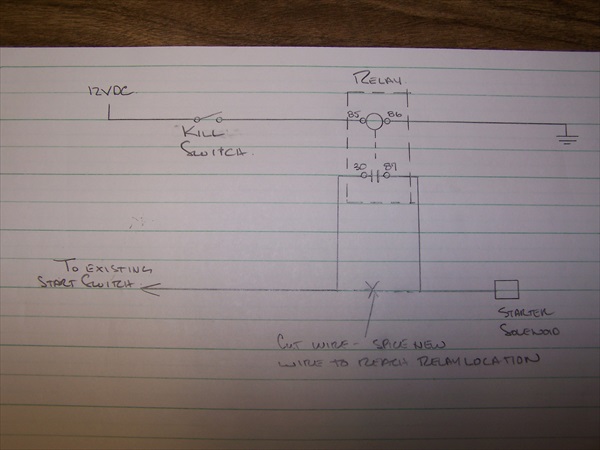 RELAY
12VDC
85 86
KILL
SWITCH
30 87
TO EXISTING
START SWITCH
STARTER
SOLENOID
CUT WIRE - SPICE NEW
WIRE TO REACH RELAY LOCATION